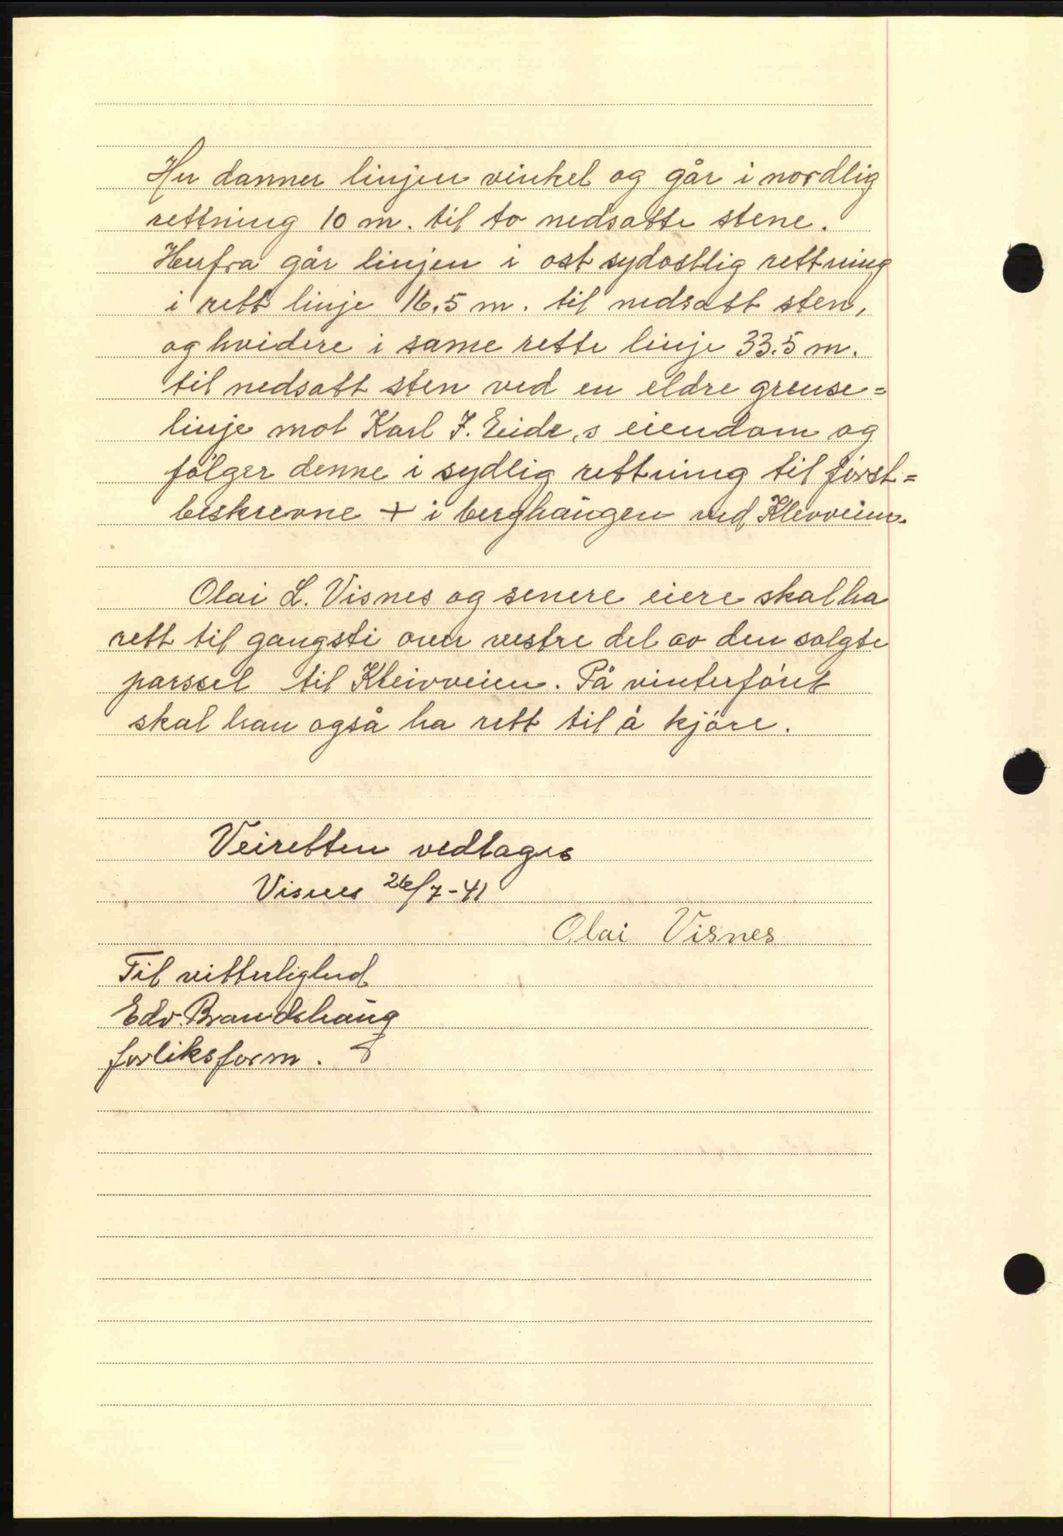 Her danner linjen vinkel og går i nordlig
rettning 10 m. til to nedsatte stene.
Herfra går linjen i ost sydostlig rettning
i rett linje 16,5 m. til nedsatt sten,
og hvidere i same rette linje 33.5 m.
til nedsatt sten ved en eldre grense=
linje mot Karl J. Eide,s eiendom og
fölger denne i sydlig rettning til först=
beskrevne + i berghaugen ved Klevveien.
Olai L. Visnes og senere eiere skal ha
rett til gangsti over vestre del av den solgte
parssel til Kleivveien. På vinterföret
skal han også ha rett til å kjöre.
Veiretten vedtages
Visnes 26/7-41
Olai Visnes
Til vitterlighed
Edv. Brandshaug
forliksform.